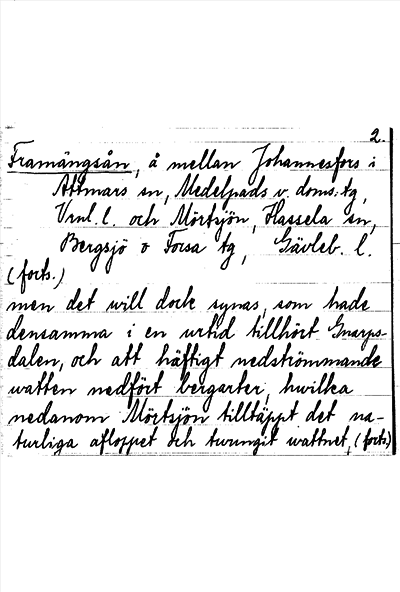 2.
Framängsån, å mellan Johannesfors i
Attmars sn, Medelpads v. doms. tg,
Vrnl. l. och Mörtsjön, Hassela sn,
Bergsjö o Forsa tg, Gävleb. l.
(forts.)
men det will dock synas, som hade
densamma i en urtid tillhört Gnarps-
dalen, och att häftigt nedströmmande
watten nedfört bergarter, hwilka
nedanom Mörtsjön tilltäppt det na-
turliga afloppet och twungit wattnet, (forts.)